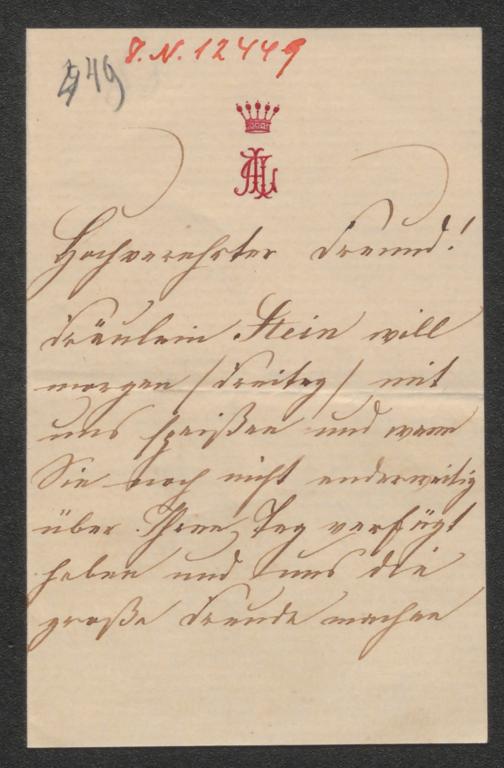 8. N. 12449
449
AL
Hochverehrter Freund!
Fräulein Stein will
morgen /Freitag/ mit
uns speißen und wenn
Sie noch nicht anderweitig
über Ihren Tag verfügt
haben und uns die
große Freude machen